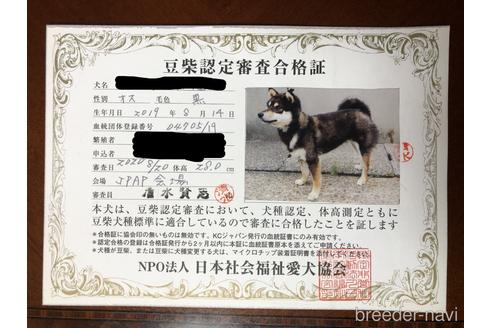 豆柴認定審査合格証
犬名
性別 オス 毛色 黒
生年月日 2019年8月14日
血統団体登録番号 04705/19
繁殖者
申込者
審査日 2020 5/20 体高 28.0cm
会場 JPAP会場
審査員 清水賢志
本犬は、豆柴認定審査において、犬種認定、体高測定ともに
豆柴犬種標準に適合しているので審査に合格したことを証します
*合格証に協会印の無いものは無効です。KCジャパン発行の血統証書にのみ有効です。
*認定合格の登録は合格証発行から2ヶ月以内に本証に血統証書原本を添えてご申請ください。
*犬種が豆柴、または豆柴に犬種変更する犬は、マイクロチップ装着証明書を添付してください。
NPO法人 日本社会福祉愛犬協会
breeder-navi